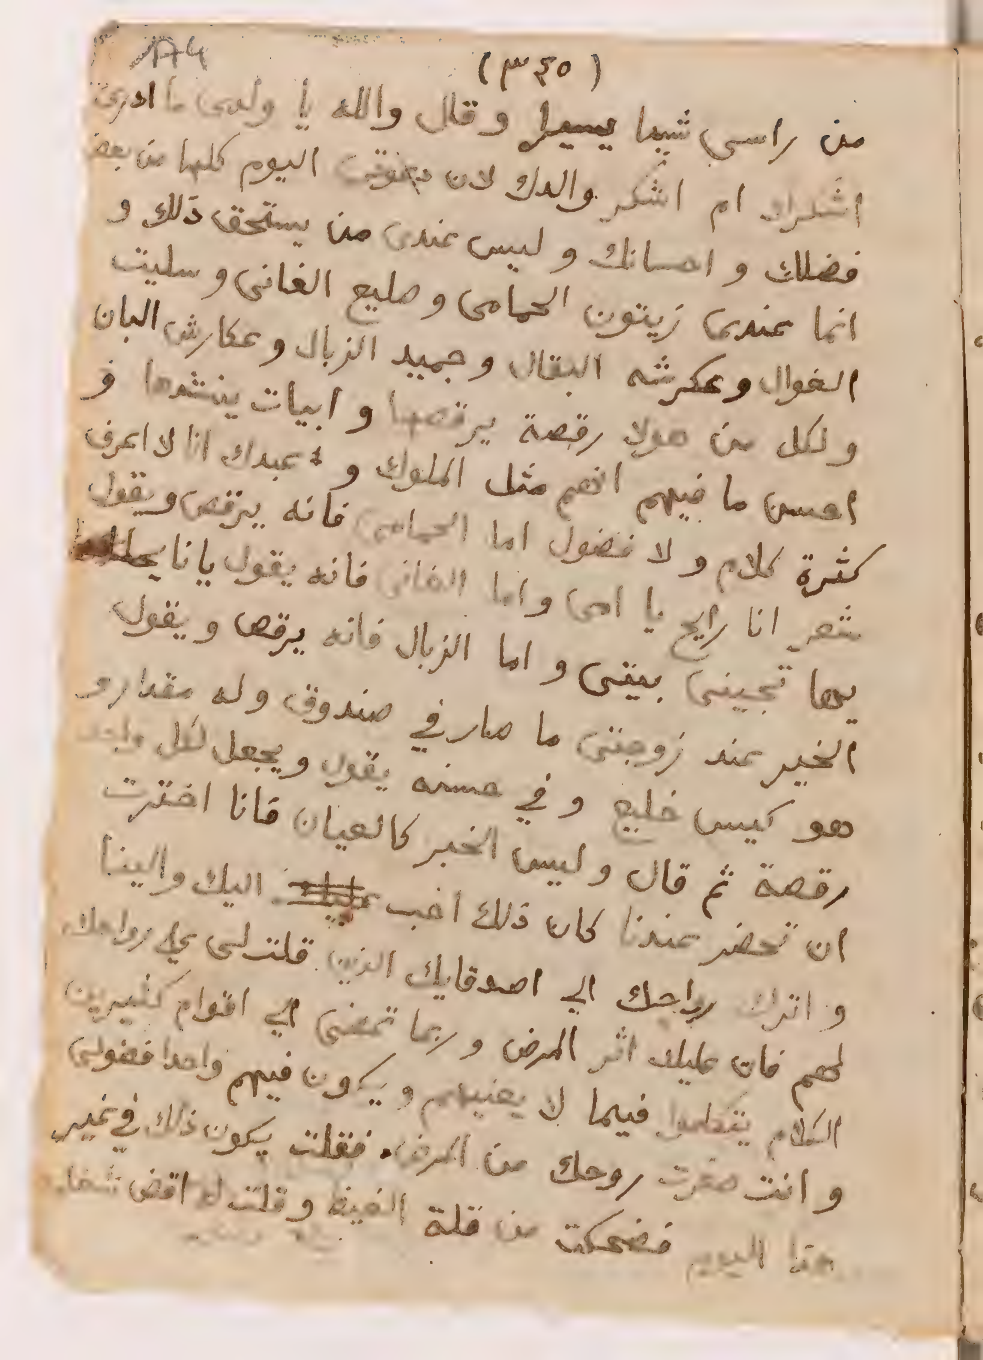 (٣٤٥)
من راسي شيئا يسيرا وقال والله يا ولدي ما ادري
اشكرك ام اشكر والدك لان دعوتي اليوم كلها من بعض
فضلك و احسانك و ليس عندي من يستحق ذلك و
انما عندي زيتون الحمامي و صليع الغاني و سليت
الفوال و عكرشه البقال و حميد الزبال و عكارش البان
و لكل من هولا رقصة يرقصها و ابيات ينشدها و
احسن ما فيهم انهم مثل الملوك و عبدك انا لا اعرف
كثرة كلام و لا فضول اما الحمامي فانه يرقص ويقول
شعر انا رايح يا امي و اما الغاني فانه يقول يا انا
بيتي و اما الزبال فانه يرقص و يقول
الخبر عند زوجتي ما صار في صندوق وله مقدار و
هو كيس خليع و في حسنه يقول ويجعل لكل واحد
رقصة ثم قال و ليس الخبر كالعيان فانا اخترت
ان تحضر عندنا كان ذلك احب اليك والينا
و اترك رواحك الي اصدقايك الذين قلت لي علي رواحك
لهم فان عليك اثر المرض و ربما تمضي الي اقوام كثيرين
الكلام يتكلموا فيما لا يعنيهم و يكون فيهم واحدا فضولي
و انت صغرت روحك من المرض فقلت يكون ذلك في غير
هذا اليوم فضحكت من قلة الغيظ و قلت له اقض